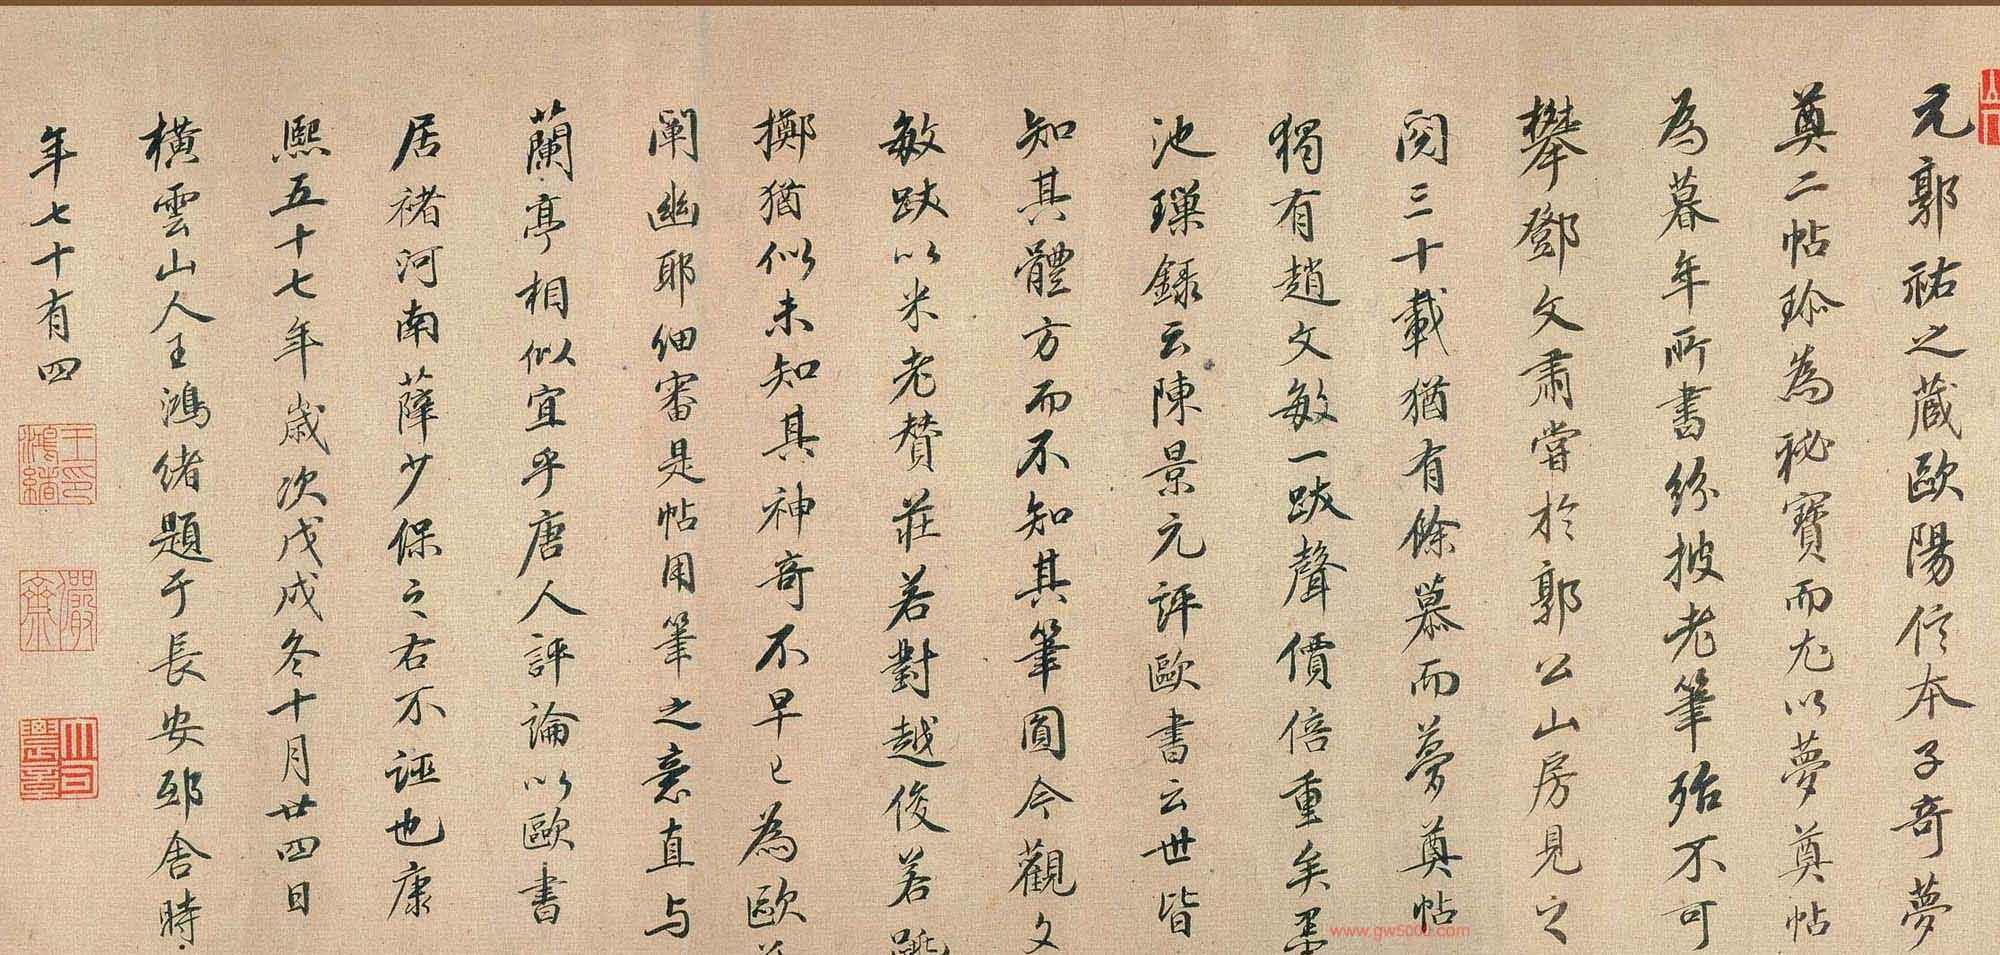 元郭祐之蔵歐陽信本子奇夢
奠二帖珎為祕寶而尤以夢奠帖
為暮年所書紛披老筆殆不可
攀鄧文肅嘗於郭公山房見之
閱三十載猶有餘慕而夢奠帖
獨有趙文敏一跋聲價倍重矣墨
池璅録云陳景元評歐書云世皆
知其體方而不知其筆圓今觀文
敏跋以米老贊莊若對越俊若跳
擲猶似未知其神奇不早已為歐
闡幽耶細審是帖用筆之意直与
蘭亭相似宜乎唐人評論以歐書
居褚河南薛少保之右不誣也康
熙五十七年歳次戊戌冬十月廿四日
橫雲山人王鴻緒題于長安邸舍時
年七十有四
王鴻緒印
儼齋
www.gw5000.com